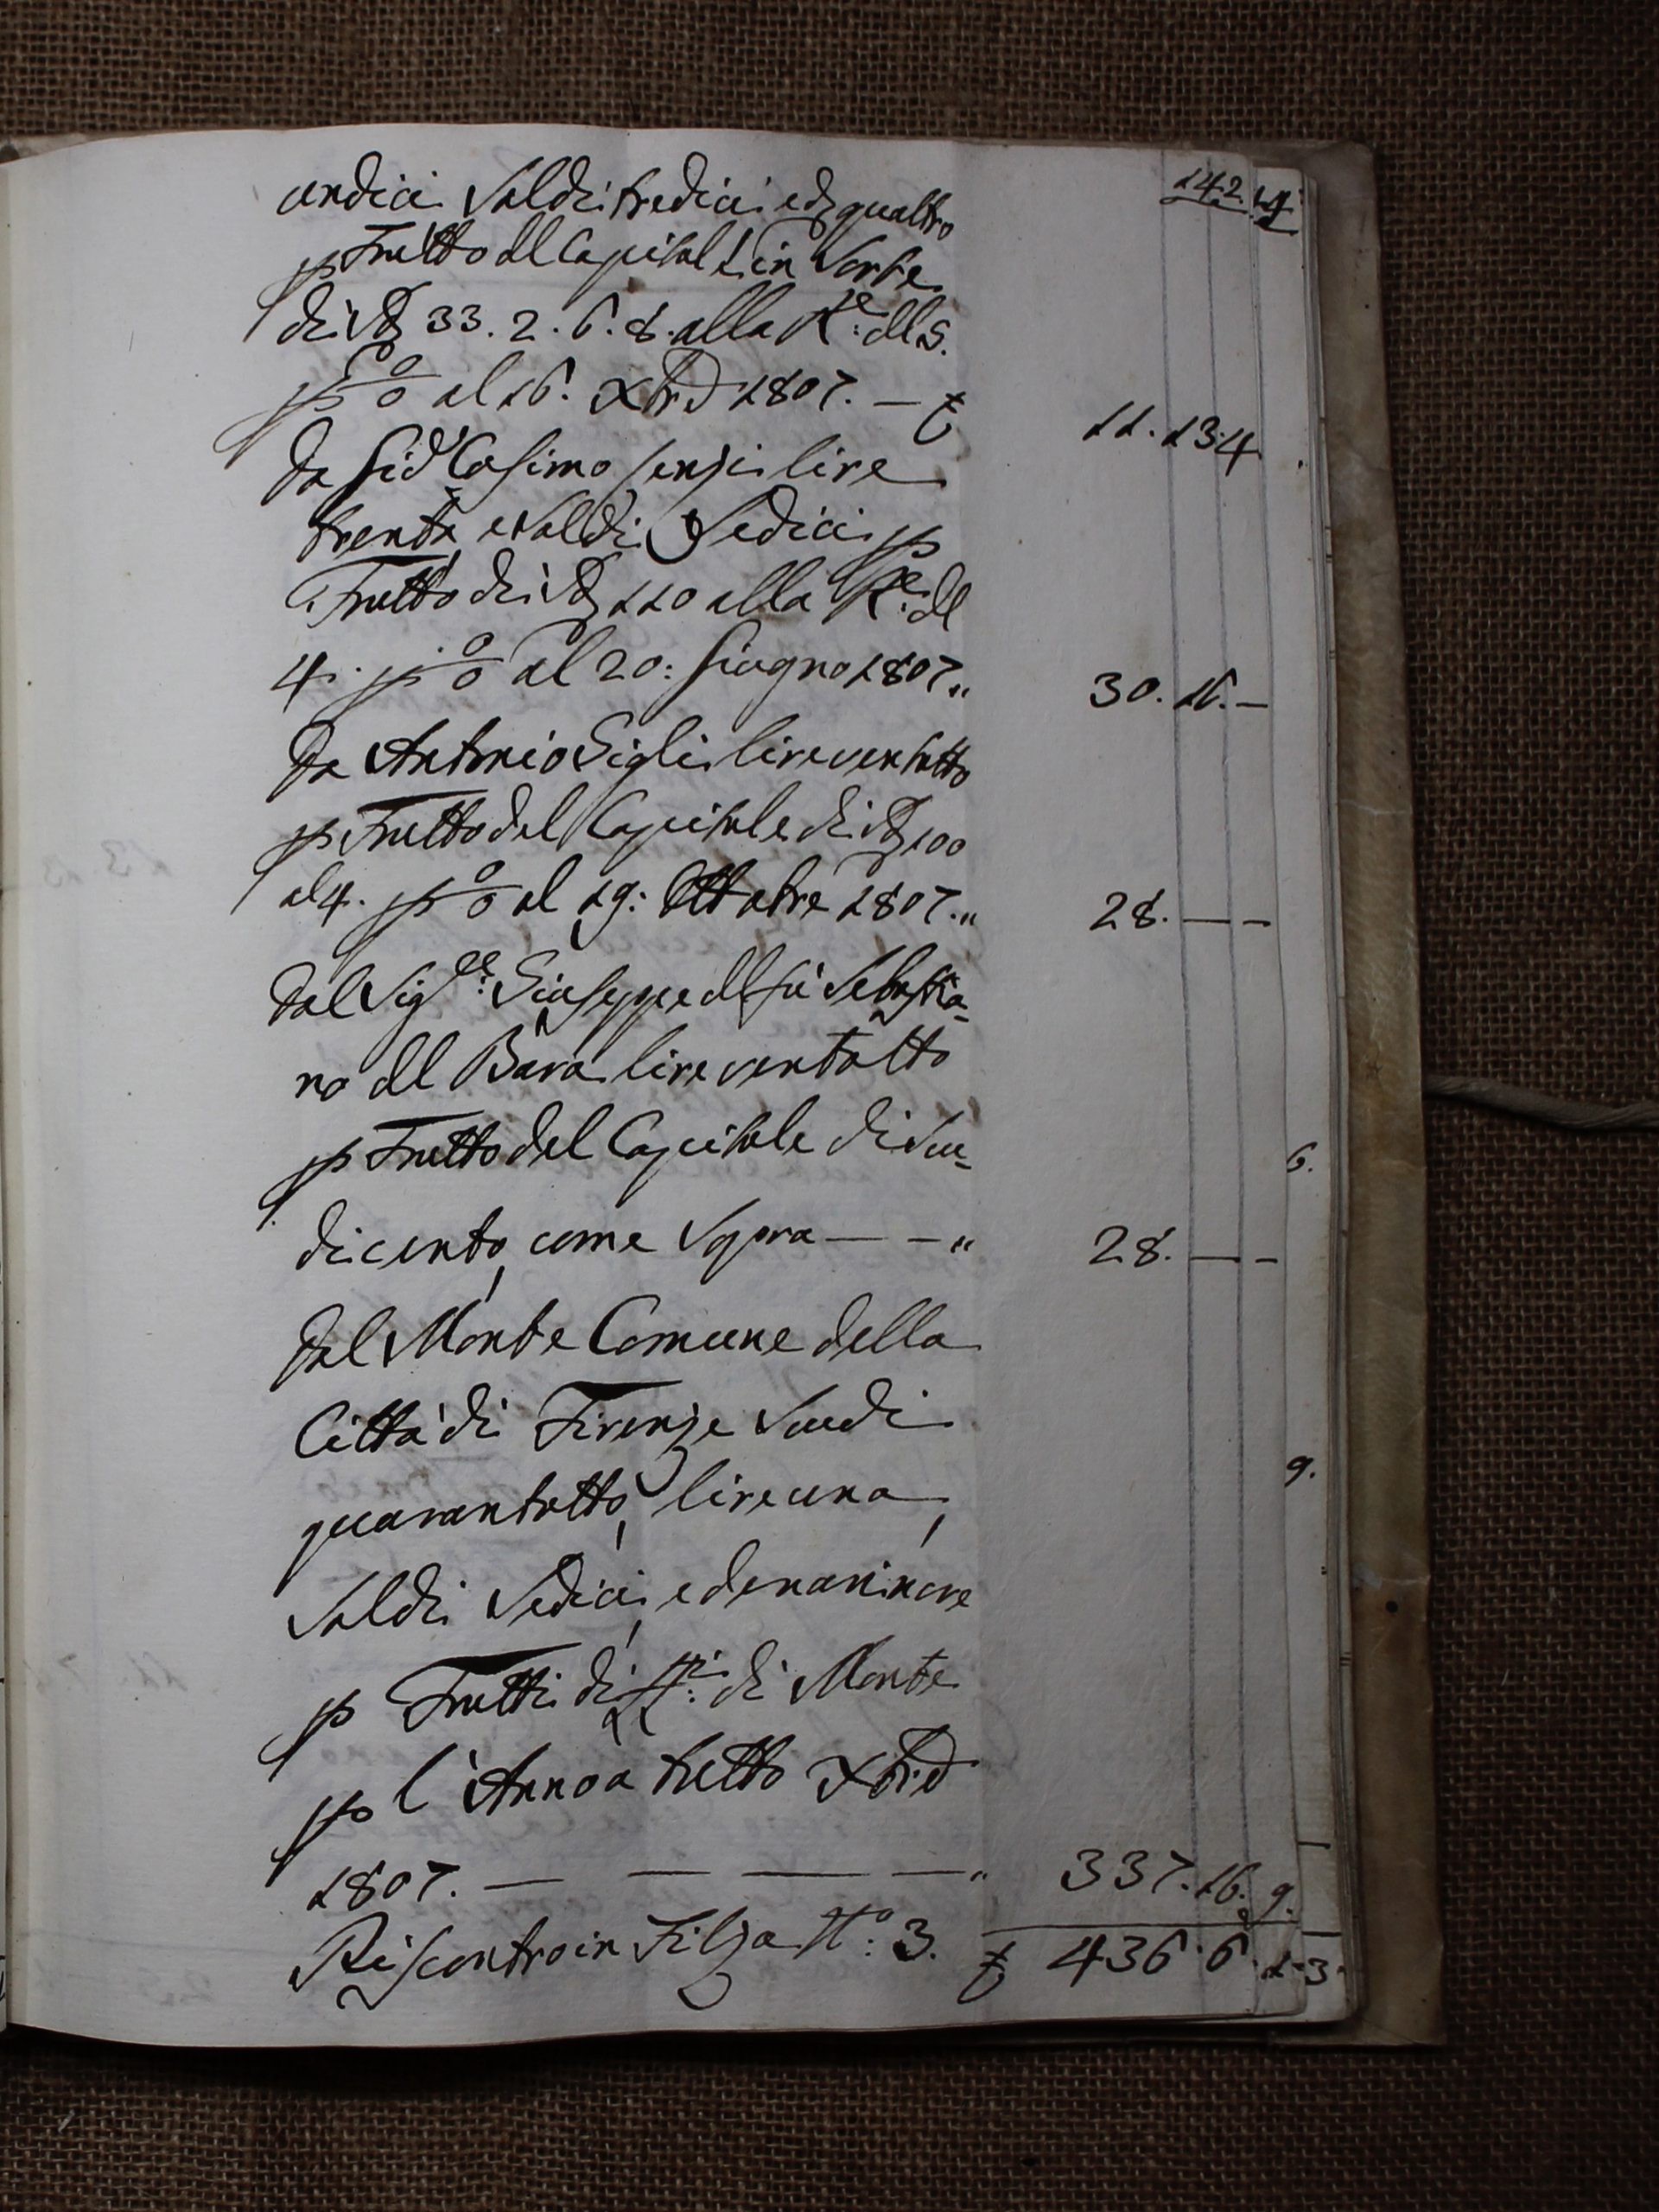 142.
undici Soldi tredici e d. quattro
p Frutto del Capitale in Sorte
di ▽di 33. 2. 6. 8. alla Rne: del 5.
p % al 16. Xbre 1807. — £ 11. 13. 4
Da Gio: Cosimo Censi lire
trenta, e Soldi Sedici p
Frutto di ▽di 110 alla Rne: del
4. p % al 20: Giugno 1807. „ 30. 16. —
Da Antonio Gigli lire ventotto
p Frutto del Capitale di ▽di 100
al 4. p % al 19: Ottobre 1807. „ 28. — —
Dal Sigre: Giuseppe del fù Sebastia-
no del Bava lire ventotto
p Frutto del Capitale di Scu-
di cento, come Sopra — — „ 28. — —
Dal Monte Comune della
Città di Firenze Scudi
quarantotto, lire una,
Soldi Sedici, e denari nove
p Frutti di di Monte
p l'Anno a tutto Xbre
1807. — — — — „ 337. 16. 9.
Riscontro in Filza No: 3. £ 436. 6. 1
6.
9.
3.